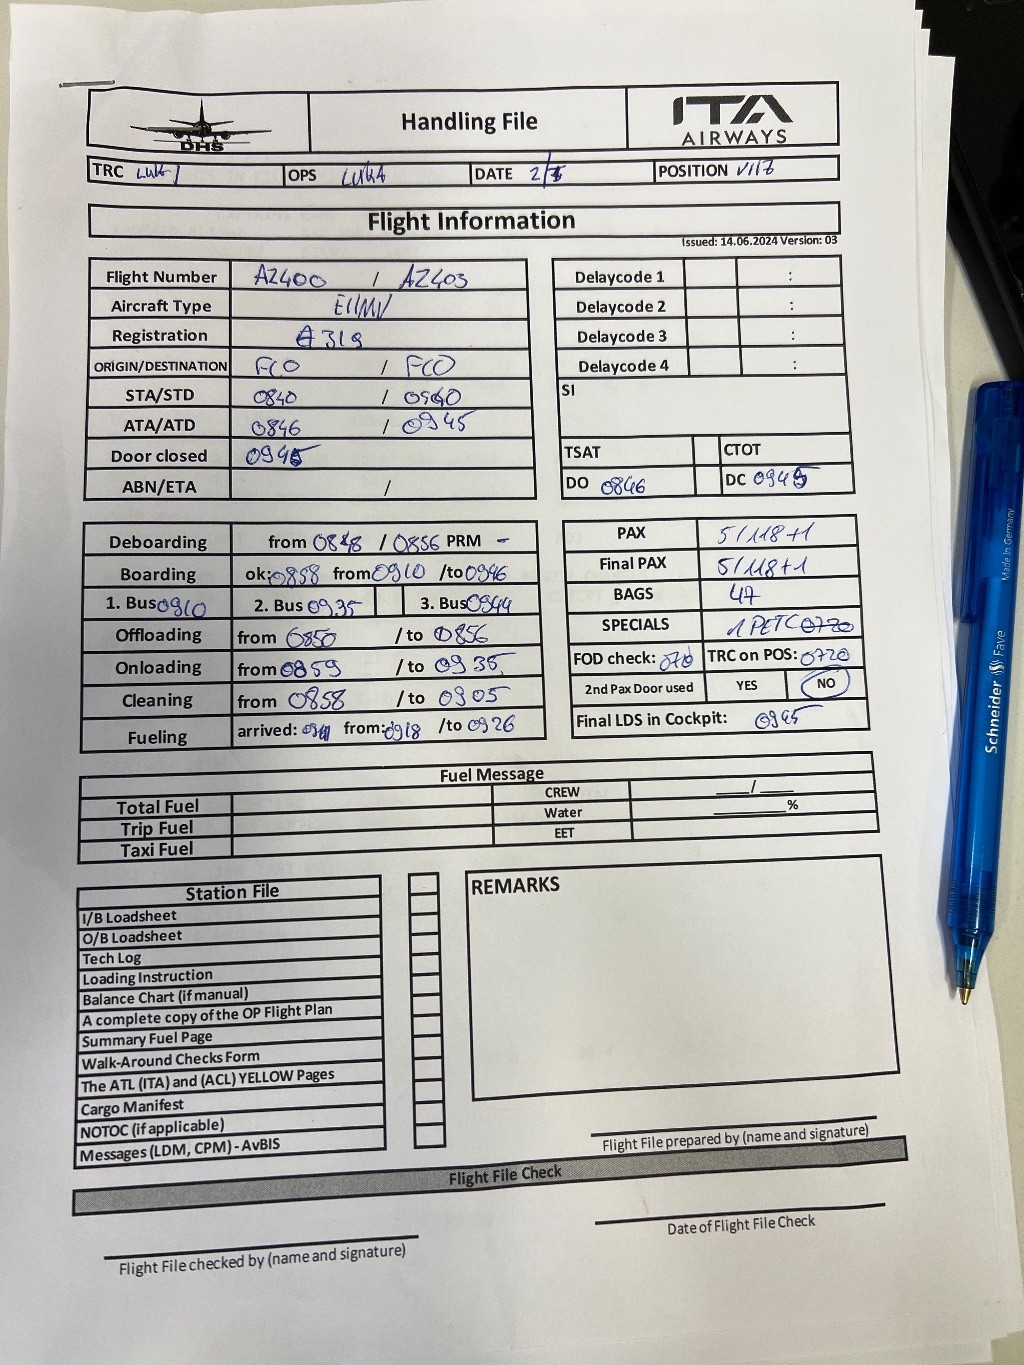 DHS
Handling File
ITA
AIRWAYS
TRC LUKA OPS LUKA DATE 2/ POSITION V117
Flight Information
Issued: 14.06.2024 Version: 03
Flight Number AZ400 / AZ403
Aircraft Type
Registration A319
ORIGIN/DESTINATION FCO / FCO
STA/STD 0840 / 0940
ATA/ATD 0846 / 0945
Door closed 0945
ABN/ETA /
Delaycode 1 :
Delaycode 2 :
Delaycode 3 :
Delaycode 4 :
SI
TSAT CTOT
DO 0846 DC 0945
Deboarding from 0848 / 0856 PRM -
Boarding ok: 0858 from 0910 /to 0946
1. Bus 0910 2. Bus 0935 3. Bus 0944
Offloading from 0850 /to 0856
Onloading from 0859 /to 0935
Cleaning from 0858 /to 0905
Fueling arrived: from: 0918 /to 0926
PAX 5/118+1
Final PAX 5/118+1
BAGS 47
SPECIALS 1 PETC
FOD check: TRC on POS: 0720
2nd Pax Door used YES NO
Final LDS in Cockpit: 0945
Fuel Message
Total Fuel CREW ___/___
Trip Fuel Water ______%
Taxi Fuel EET
Station File
I/B Loadsheet
O/B Loadsheet
Tech Log
Loading Instruction
Balance Chart (if manual)
A complete copy of the OP Flight Plan
Summary Fuel Page
Walk-Around Checks Form
The ATL (ITA) and (ACL) YELLOW Pages
Cargo Manifest
NOTOC (if applicable)
Messages (LDM, CPM) - AvBIS
REMARKS
Flight File prepared by (name and signature)
Flight File Check
Date of Flight File Check
Flight File checked by (name and signature)
Schneider Fave
Made in Germany